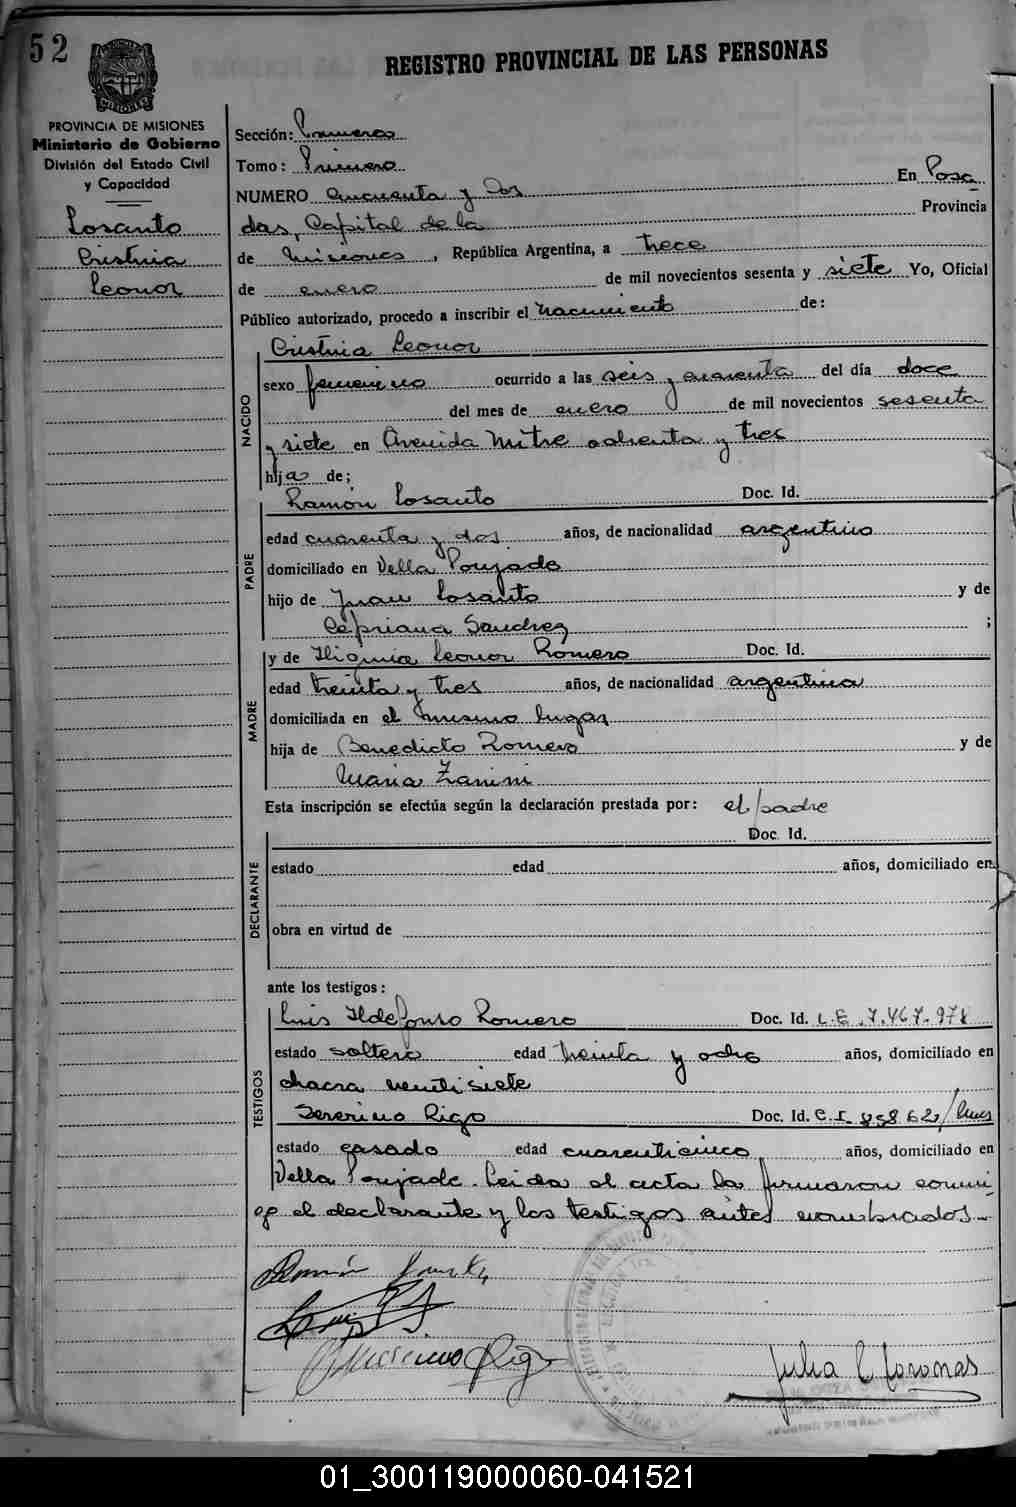 52
REGISTRO PROVINCIAL DE LAS PERSONAS
MISIONES
PROVINCIA DE MISIONES
Ministerio de Gobierno
División del Estado Civil
y Capacidad
Losanto
Cristina
Leonor
Sección: Primera
Tomo: Primero
NUMERO cincuenta y dos En Posa
das, Capital de la Provincia
de Misiones, República Argentina, a trece
de enero de mil novecientos sesenta y siete Yo, Oficial
Público autorizado, procedo a inscribir el nacimiento de:
NACIDO
Cristina Leonor
sexo femenino ocurrido a las seis y cuarenta del día doce
del mes de enero de mil novecientos sesenta
y siete en Avenida Mitre ochenta y tres
hija de;
PADRE
Ramón Losanto Doc. Id.
edad cuarenta y dos años, de nacionalidad argentino
domiciliado en Villa Poujade
hijo de Juan Losanto y de
Cipriana Sanchez ;
MADRE
y de Higinia Leonor Romero Doc. Id.
edad treinta y tres años, de nacionalidad argentina
domiciliada en el mismo lugar
hija de Benedicto Romero y de
Maria Zanini
Esta inscripción se efectúa según la declaración prestada por: el padre
DECLARANTE
Doc. Id.
estado edad años, domiciliado en
obra en virtud de
ante los testigos:
TESTIGOS
Luis Ildefonso Romero Doc. Id. L.E. 7.467.978
estado soltero edad treinta y ocho años, domiciliado en
chacra veintisiete
Severino Rigo Doc. Id. C.I. 898.62
estado casado edad cuarenticinco años, domiciliado en
Villa Poujade. Leida el acta la firmaron conmi-
go el declarante y los testigos antes nombrados.-
Ramón Losanto
Severino Rigo
Julia C. Coronas
01_300119000060-041521